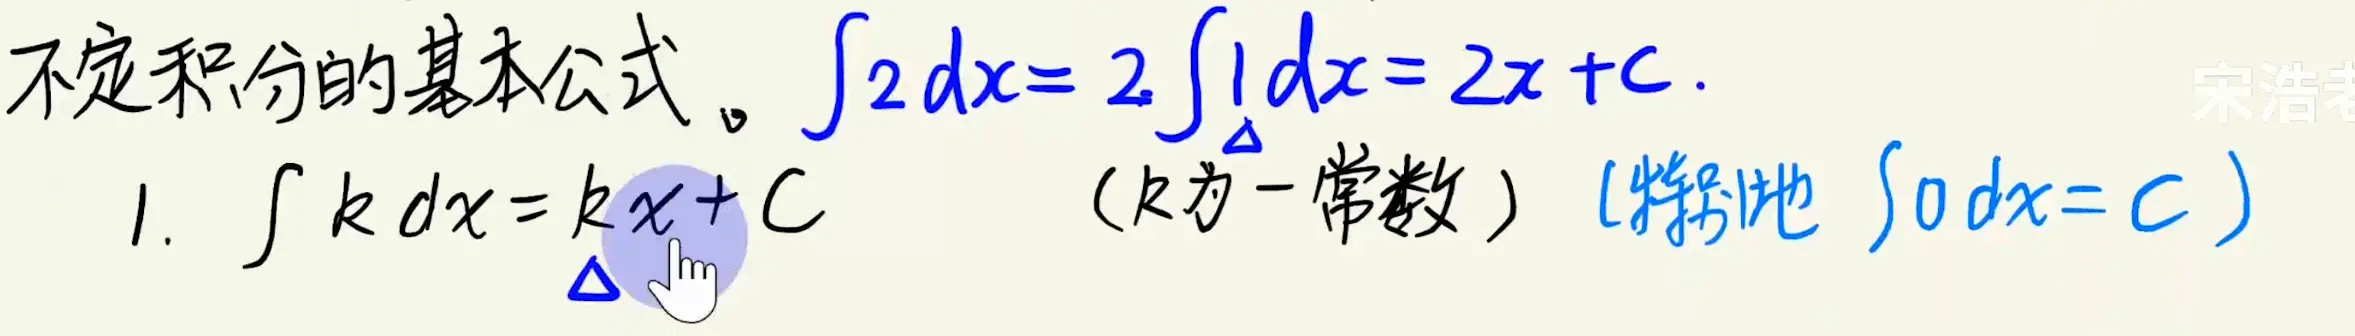 不定积分的基本公式。 ∫2dx=2·∫1dx=2x+C.
宋浩老
1. ∫kdx=kx+C (k为一常数) (特别地 ∫0dx=C)